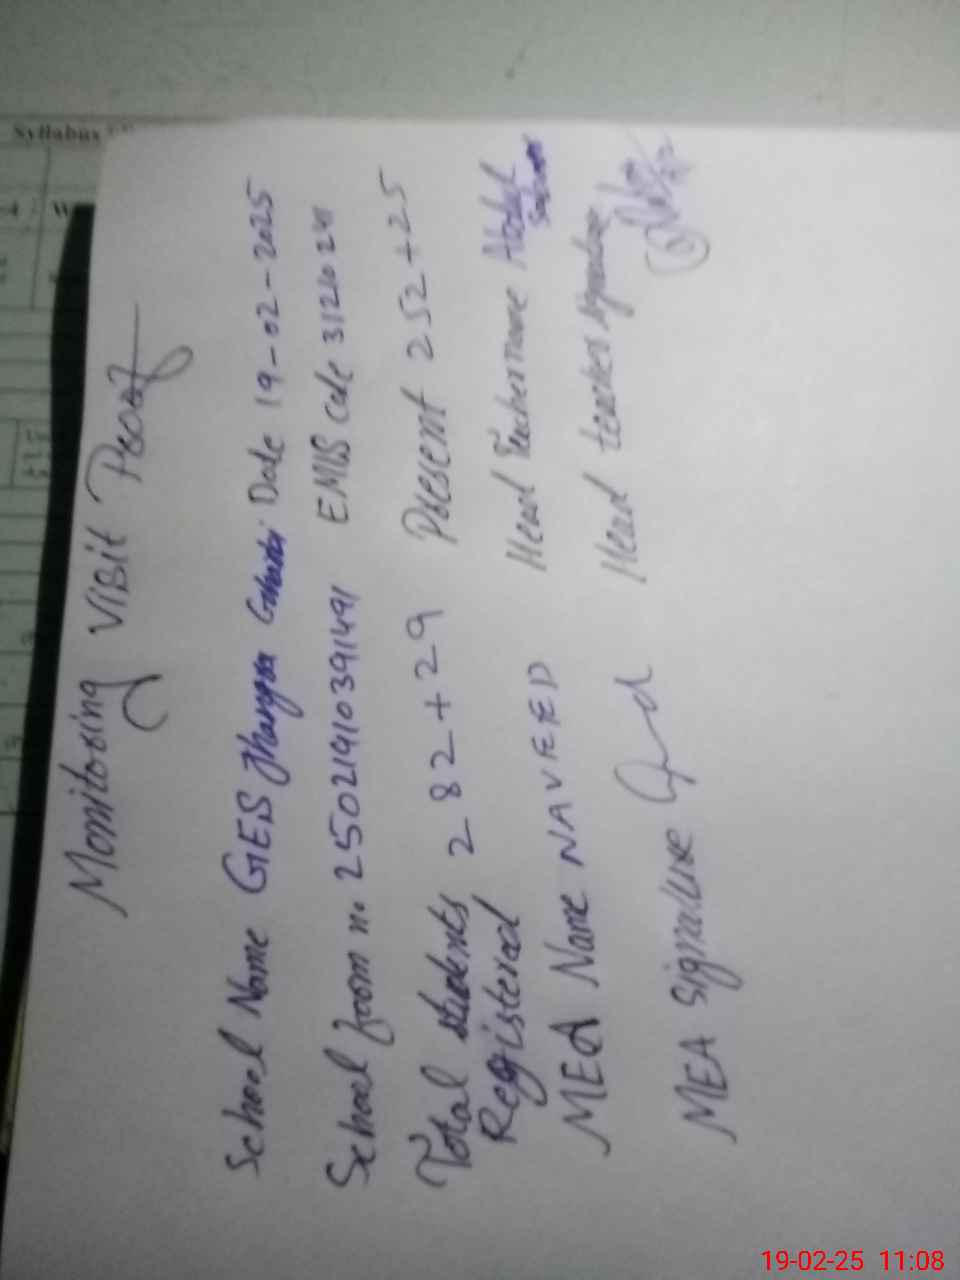 Syllabus
Monitoring Visit Proof
School Name GES Jhangra Date 19-02-2025
School foom no. 25021910391491 EMIS Code
Total students Registered 282+29 Present 252+25
MEA Name NAVEED Head Teacher name Abdul
MEA signature Head teacher signature
19-02-25 11:08